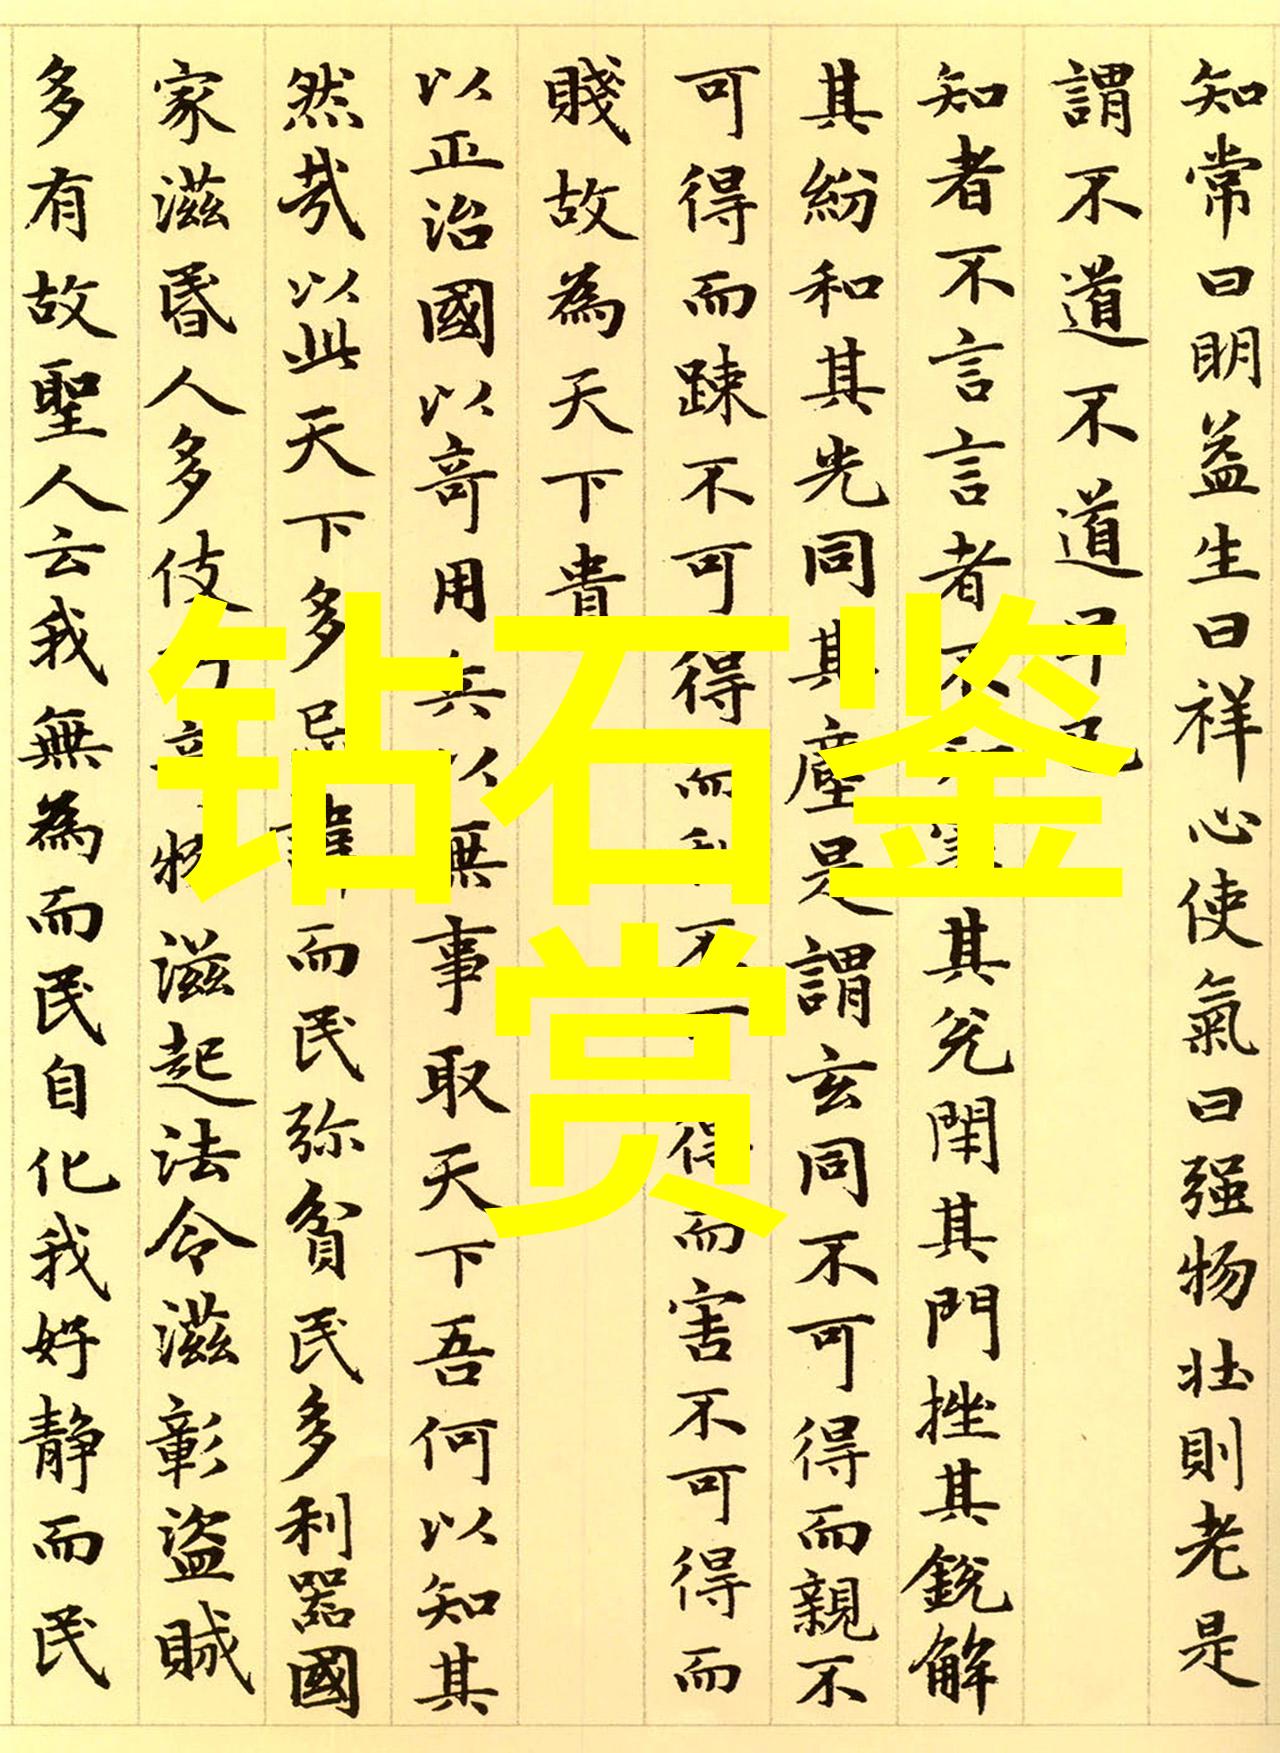 知常曰明益生曰祥心使氣曰强物壮則老是
謂不道不道早已
知者不言言者不其兊閇其門挫其銳解
其紛和其光同其塵是謂玄同不可得而親不
可得而踈不可得而利不得而害不可得而
賤故為天下貴
以正治國以竒用兵以無事取天下吾何以知其
然哉以此天下多忌諱而民弥貧民多利器國
家滋昏人多伎物滋起法令滋彰盜賊
多有故聖人云我無為而民自化我好静而民
钻石鉴
赏